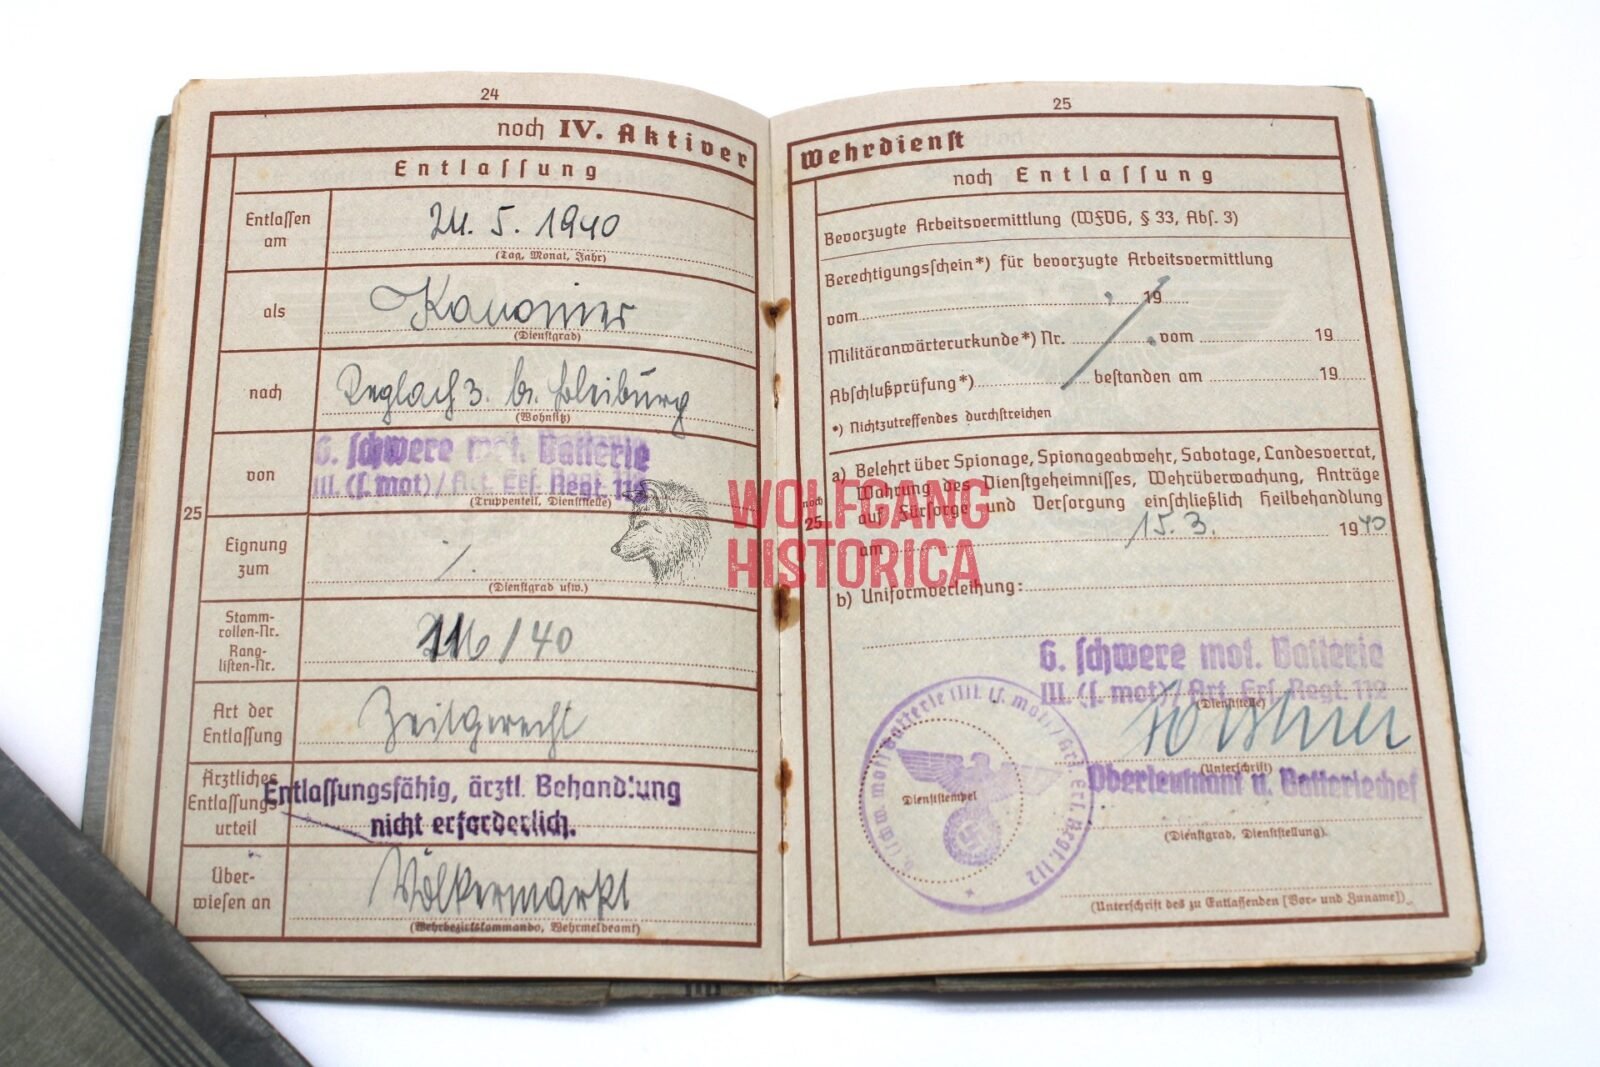 24
noch IV. Aktiver
Entlassung
Entlassen am
24. 5. 1940
(Tag, Monat, Jahr)
als
Kanonier
(Dienstgrad)
nach
b. Bleiburg
(Wohnsitz)
von
6. schwere mot. Batterie
III. (s. mot) / Art. Ers. Regt. 112
(Truppenteil, Dienststelle)
25
Eignung zum
(Dienstgrad usw.)
Stamm-
rollen-Nr.
Rang-
listen-Nr.
/40
Art der
Entlassung
Zeitgerecht
Ärztliches
Entlassungs-
urteil
Entlassungsfähig, ärztl. Behandlung
nicht erforderlich.
Über-
wiesen an
Völkermarkt
(Wehrbezirkskommando, Wehrmeldeamt)
25
Wehrdienst
noch Entlassung
Bevorzugte Arbeitsvermittlung (WFVG, § 33, Abs. 3)
Berechtigungsschein*) für bevorzugte Arbeitsvermittlung
vom 19
Militäranwärterurkunde*) Nr. vom 19
Abschlußprüfung*) bestanden am 19
*) Nichtzutreffendes durchstreichen
noch
25
a) Belehrt über Spionage, Spionageabwehr, Sabotage, Landesverrat,
Wahrung des Dienstgeheimnisses, Wehrüberwachung, Anträge
auf Fürsorge und Versorgung einschließlich Heilbehandlung
am 15. 3. 1940
b) Uniformverleihung:
6. schwere mot. Batterie
III. (s. mot) / Art. Ers. Regt. 112
(Dienststelle)
(Unterschrift)
Oberleutnant u. Batteriechef
(Dienstgrad, Dienststellung)
Dienststempel
(Unterschrift des zu Entlassenden [Vor- und Zuname])
WOLFGANG
HISTORICA